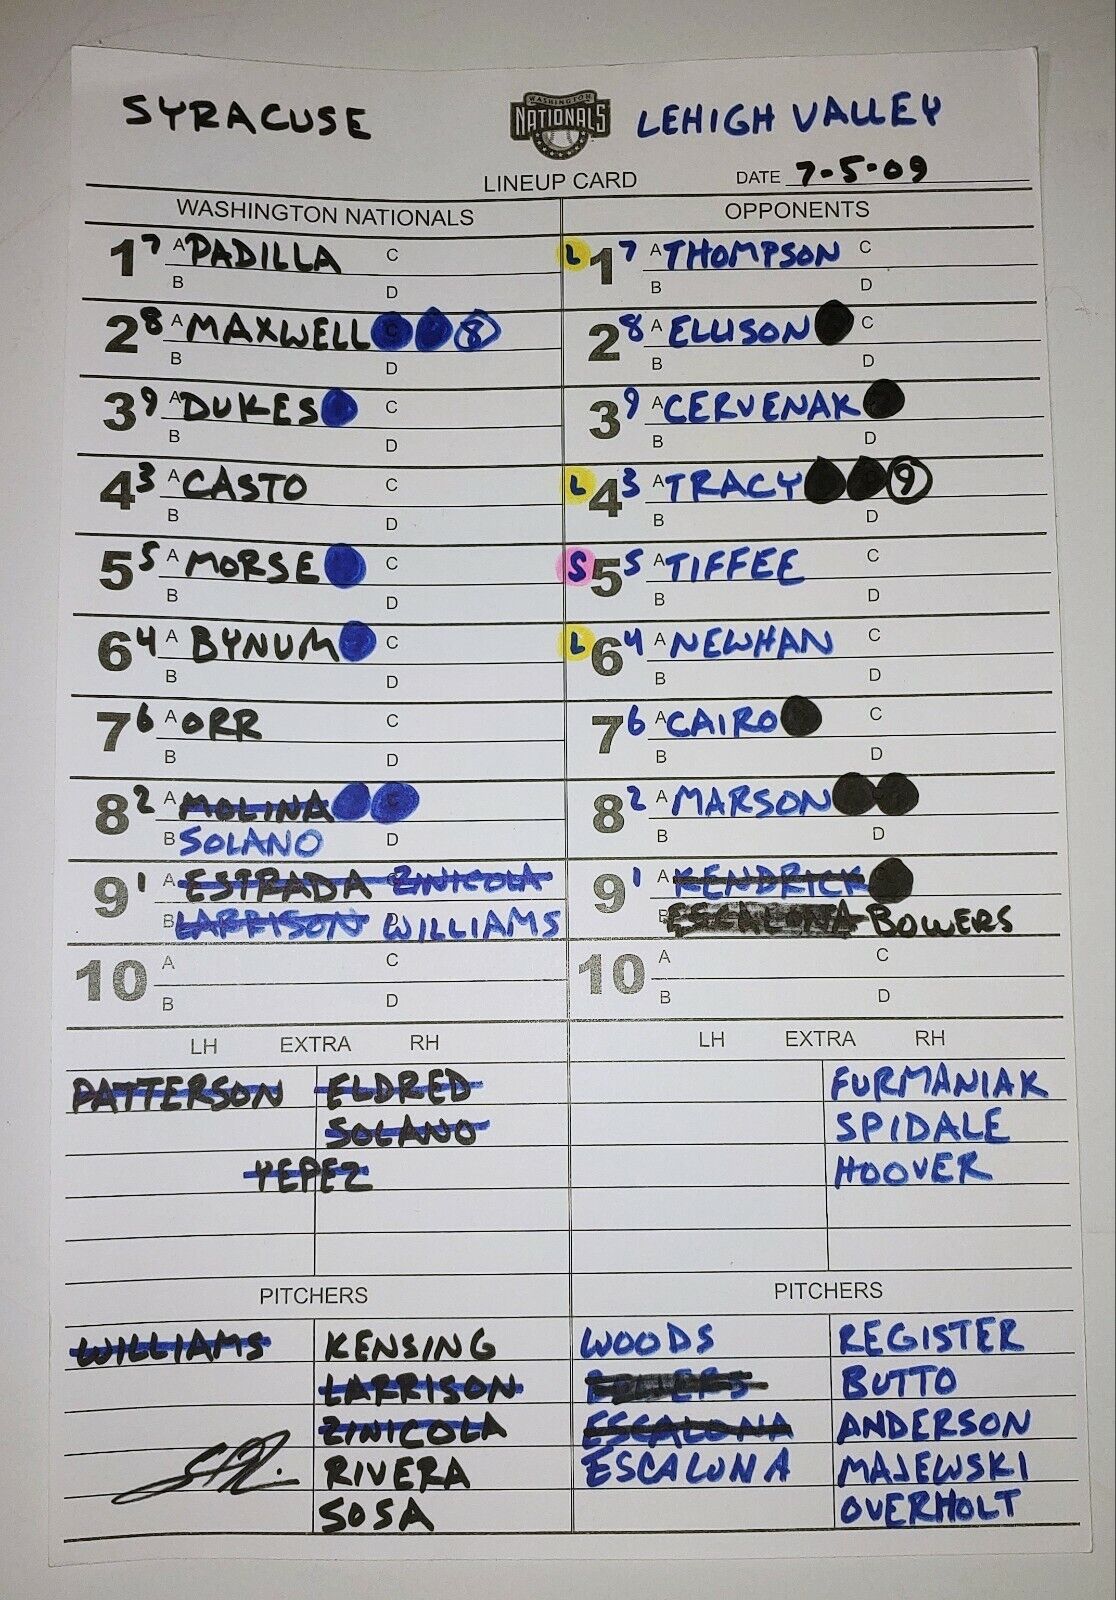 SYRACUSE
WASHINGTON
NATIONALS
LEHIGH VALLEY
LINEUP CARD
DATE 7-5-09
WASHINGTON NATIONALS
OPPONENTS
1 7 A PADILLA C
B D
L 1 7 A THOMPSON C
B D
2 8 A MAXWELL C 8
B D
2 8 A ELLISON C
B D
3 9 A DUKES C
B D
3 9 A CERVENAK
B D
4 3 A CASTO C
B D
L 4 3 A TRACY 9
B D
5 5 A MORSE C
B D
S 5 5 A TIFFEE C
B D
6 4 A BYNUM C
B D
L 6 4 A NEWHAN C
B D
7 6 A ORR C
B D
7 6 A CAIRO C
B D
8 2 A MOLINA C
B SOLANO D
8 2 A MARSON
B D
9 1 A ESTRADA C ZINICOLA
B LARRISON D WILLIAMS
9 1 A KENDRICK
B ESCALONA BOWERS
10 A C
B D
10 A C
B D
LH EXTRA RH
PATTERSON ELDRED
SOLANO
YEPEZ
LH EXTRA RH
FURMANIAK
SPIDALE
HOOVER
PITCHERS
WILLIAMS KENSING
LARRISON
ZINICOLA
RIVERA
SOSA
PITCHERS
WOODS REGISTER
BUTTO
ESCALONA ANDERSON
ESCALONA MAJEWSKI
OVERHOLT